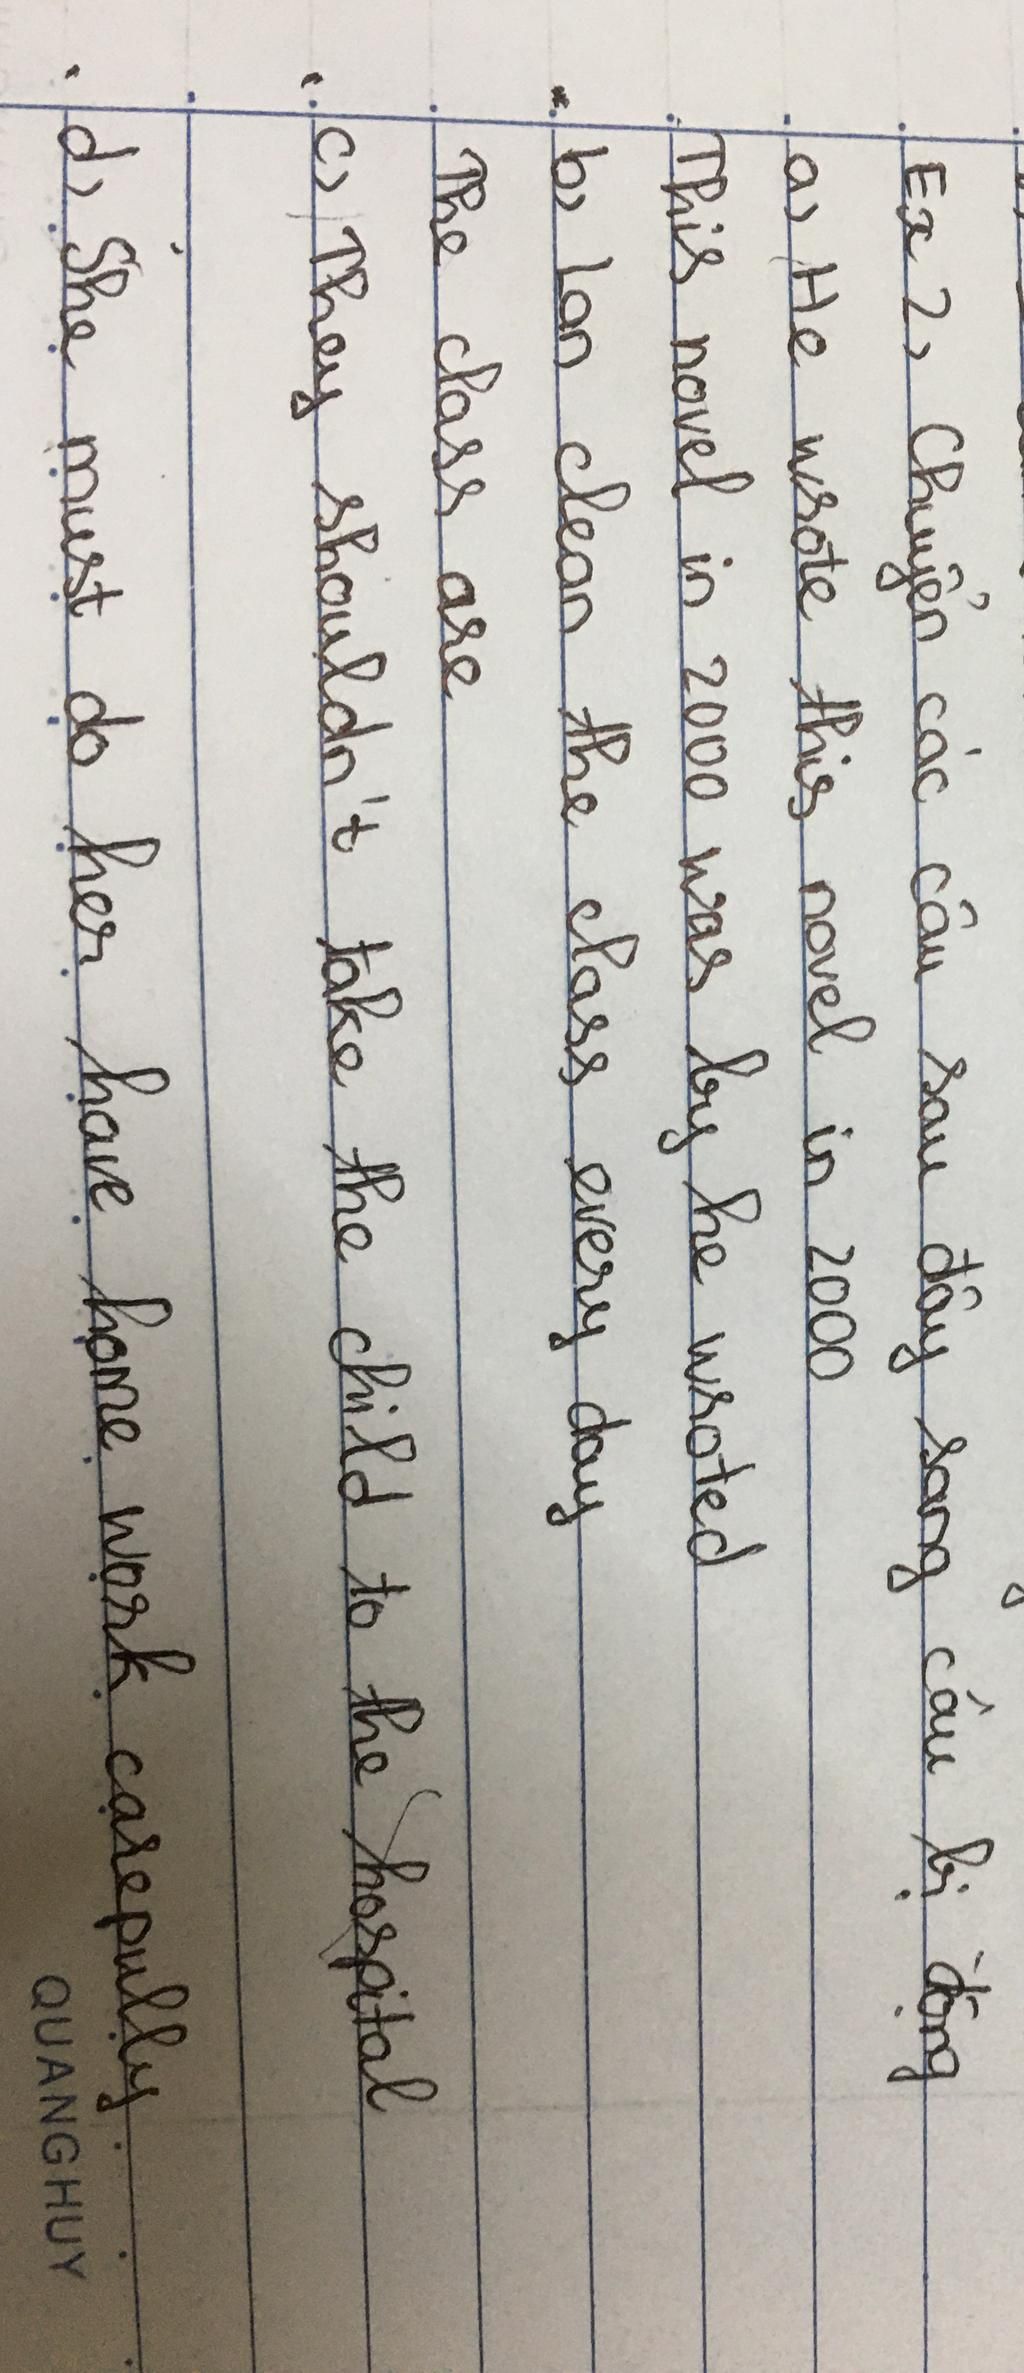 Ex 2, Chuyển các câu sau đây sang câu bị động
a, He wrote this novel in 2000
This novel in 2000 was by he wroted
b, lan clean the class every day
The class are
c, They shouldn't take the child to the hospital
d, She must do her have home work carepully
QUANGHUY